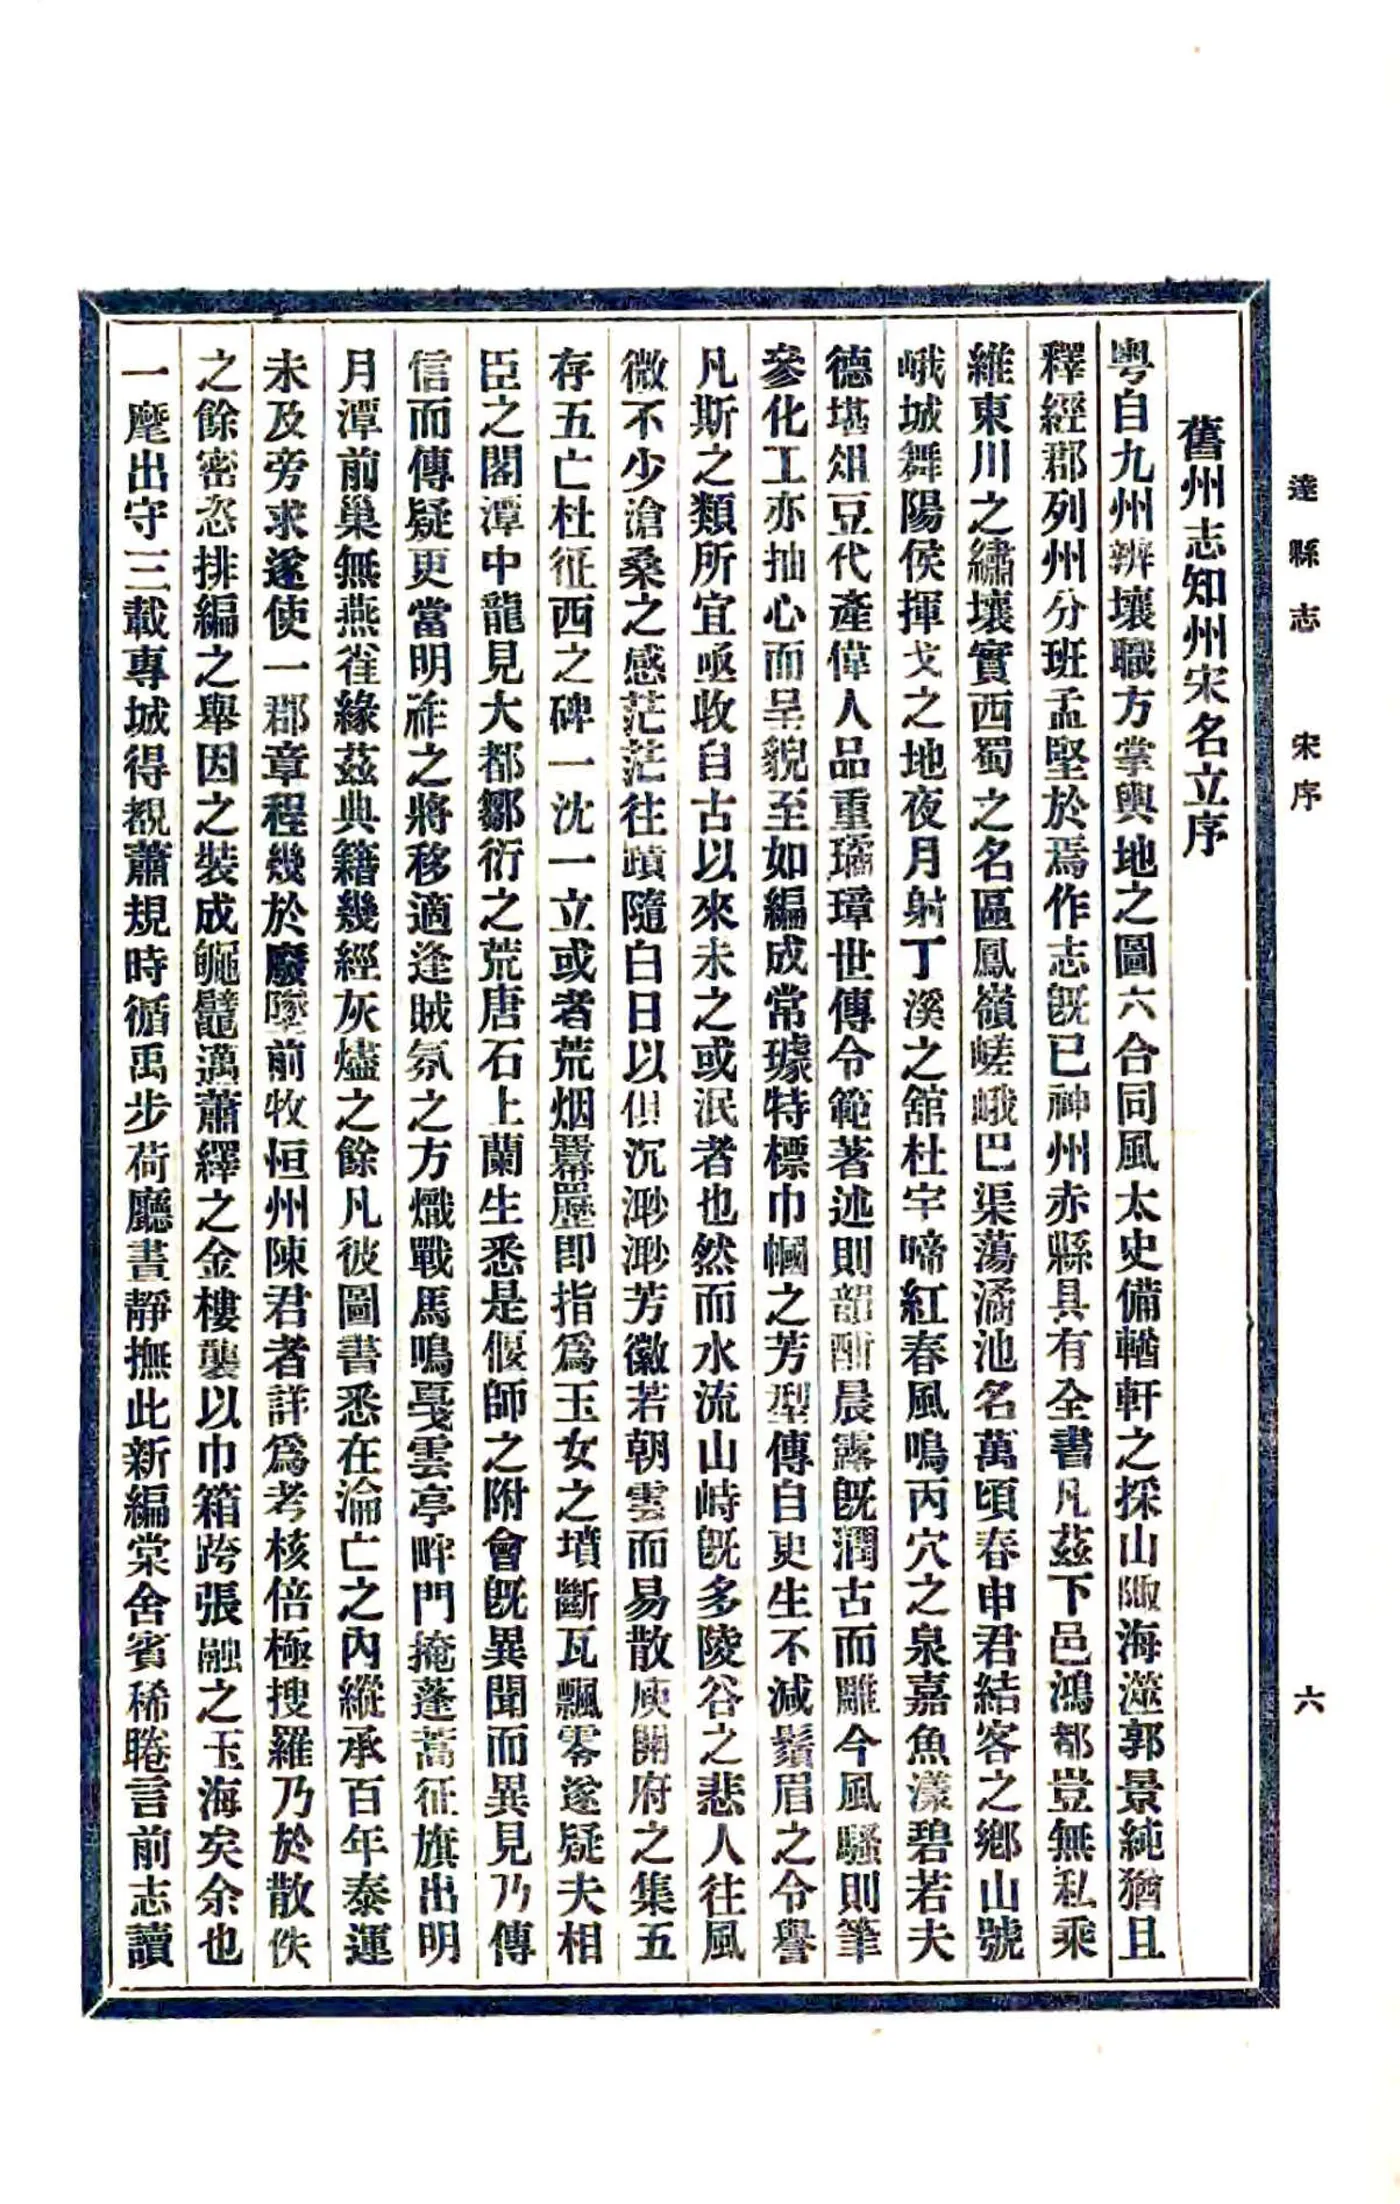 達縣志　宋序　六
舊州志知州宋名立序
粤自九州辨壤職方掌輿地之圖六合同風太史備輶軒之採山陬海澨郭景純猶且
釋經郡列州分班孟堅於焉作志旣已神州赤縣具有全書凡茲下邑鴻都豈無私乘
維東川之繡壤實西蜀之名區鳳嶺嵯峨巴渠蕩潏池名萬頃春申君結客之鄉山號
峨城舞陽侯揮戈之地夜月射丁溪之舘杜宇啼紅春風鳴丙穴之泉嘉魚漾碧若夫
德堪俎豆代產偉人品重璠璋世傳令範著述則韶酣晨露旣潤古而雕今風騷則筆
參化工亦抽心而呈貌至如編成常璩特標巾幗之芳型傳自更生不减鬚眉之令譽
凡斯之類所宜亟收自古以來未之或泯者也然而水流山峙旣多陵谷之悲人往風
微不少滄桑之感茫茫往蹟隨白日以俱沉渺渺芳徽若朝雲而易散庾開府之集五
存五亡杜征西之碑一沈一立或者荒烟羃䍥即指爲玉女之墳斷瓦飄零遂疑夫相
臣之閣潭中龍見大都鄒衍之荒唐石上蘭生悉是偃師之附會旣異聞而異見乃傳
信而傳疑更當明祚之將移適逢賊氛之方熾戰馬鳴戛雲亭畔門掩蓬蒿征旗出明
月潭前巢無燕雀緣茲典籍幾經灰燼之餘凡彼圖書悉在淪亡之內縱承百年泰運
未及旁求遂使一郡章程幾於廢墜前牧恒州陳君者詳爲考核倍極搜羅乃於散佚
之餘密恣排編之舉因之裝成蚖鼊邁蕭繹之金樓襲以巾箱跨張融之玉海矣余也
一麾出守三載專城得覩蕭規時循禹步荷廳晝靜撫此新編棠舍賓稀睠言前志讀